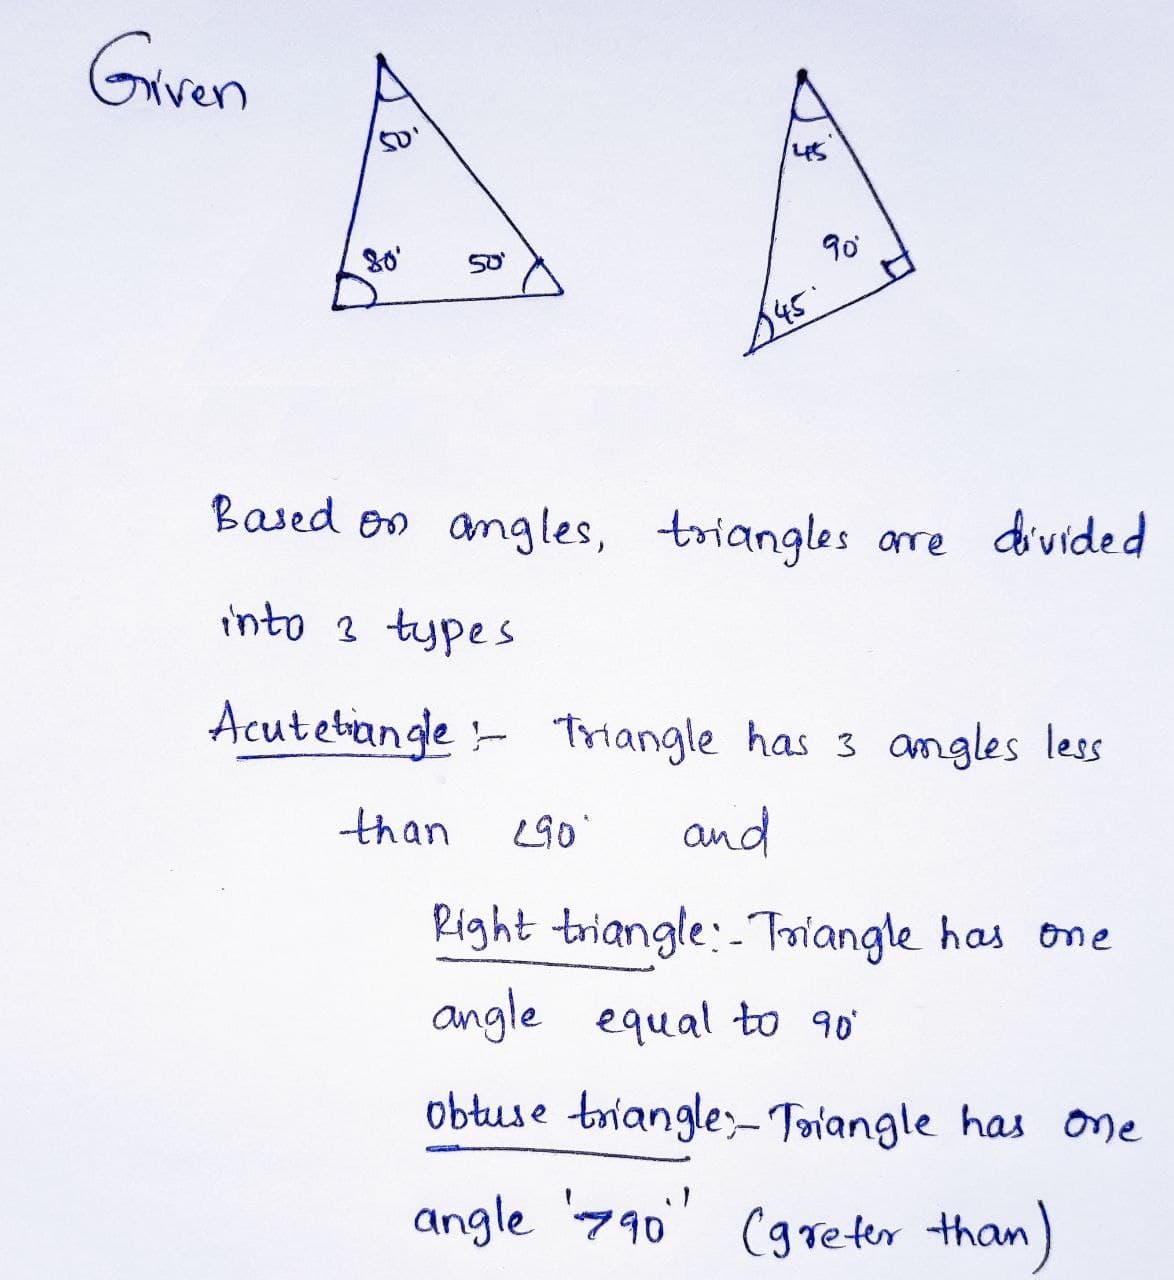 Given
50° 45°
80° 50° 90°
45°
Based on angles, triangles are divided
into 3 types
Acutetiangle :- Triangle has 3 angles less
than <90° and
Right triangle:- Triangle has one
angle equal to 90°
Obtuse triangle:- Triangle has one
angle '>90°' (greter than)